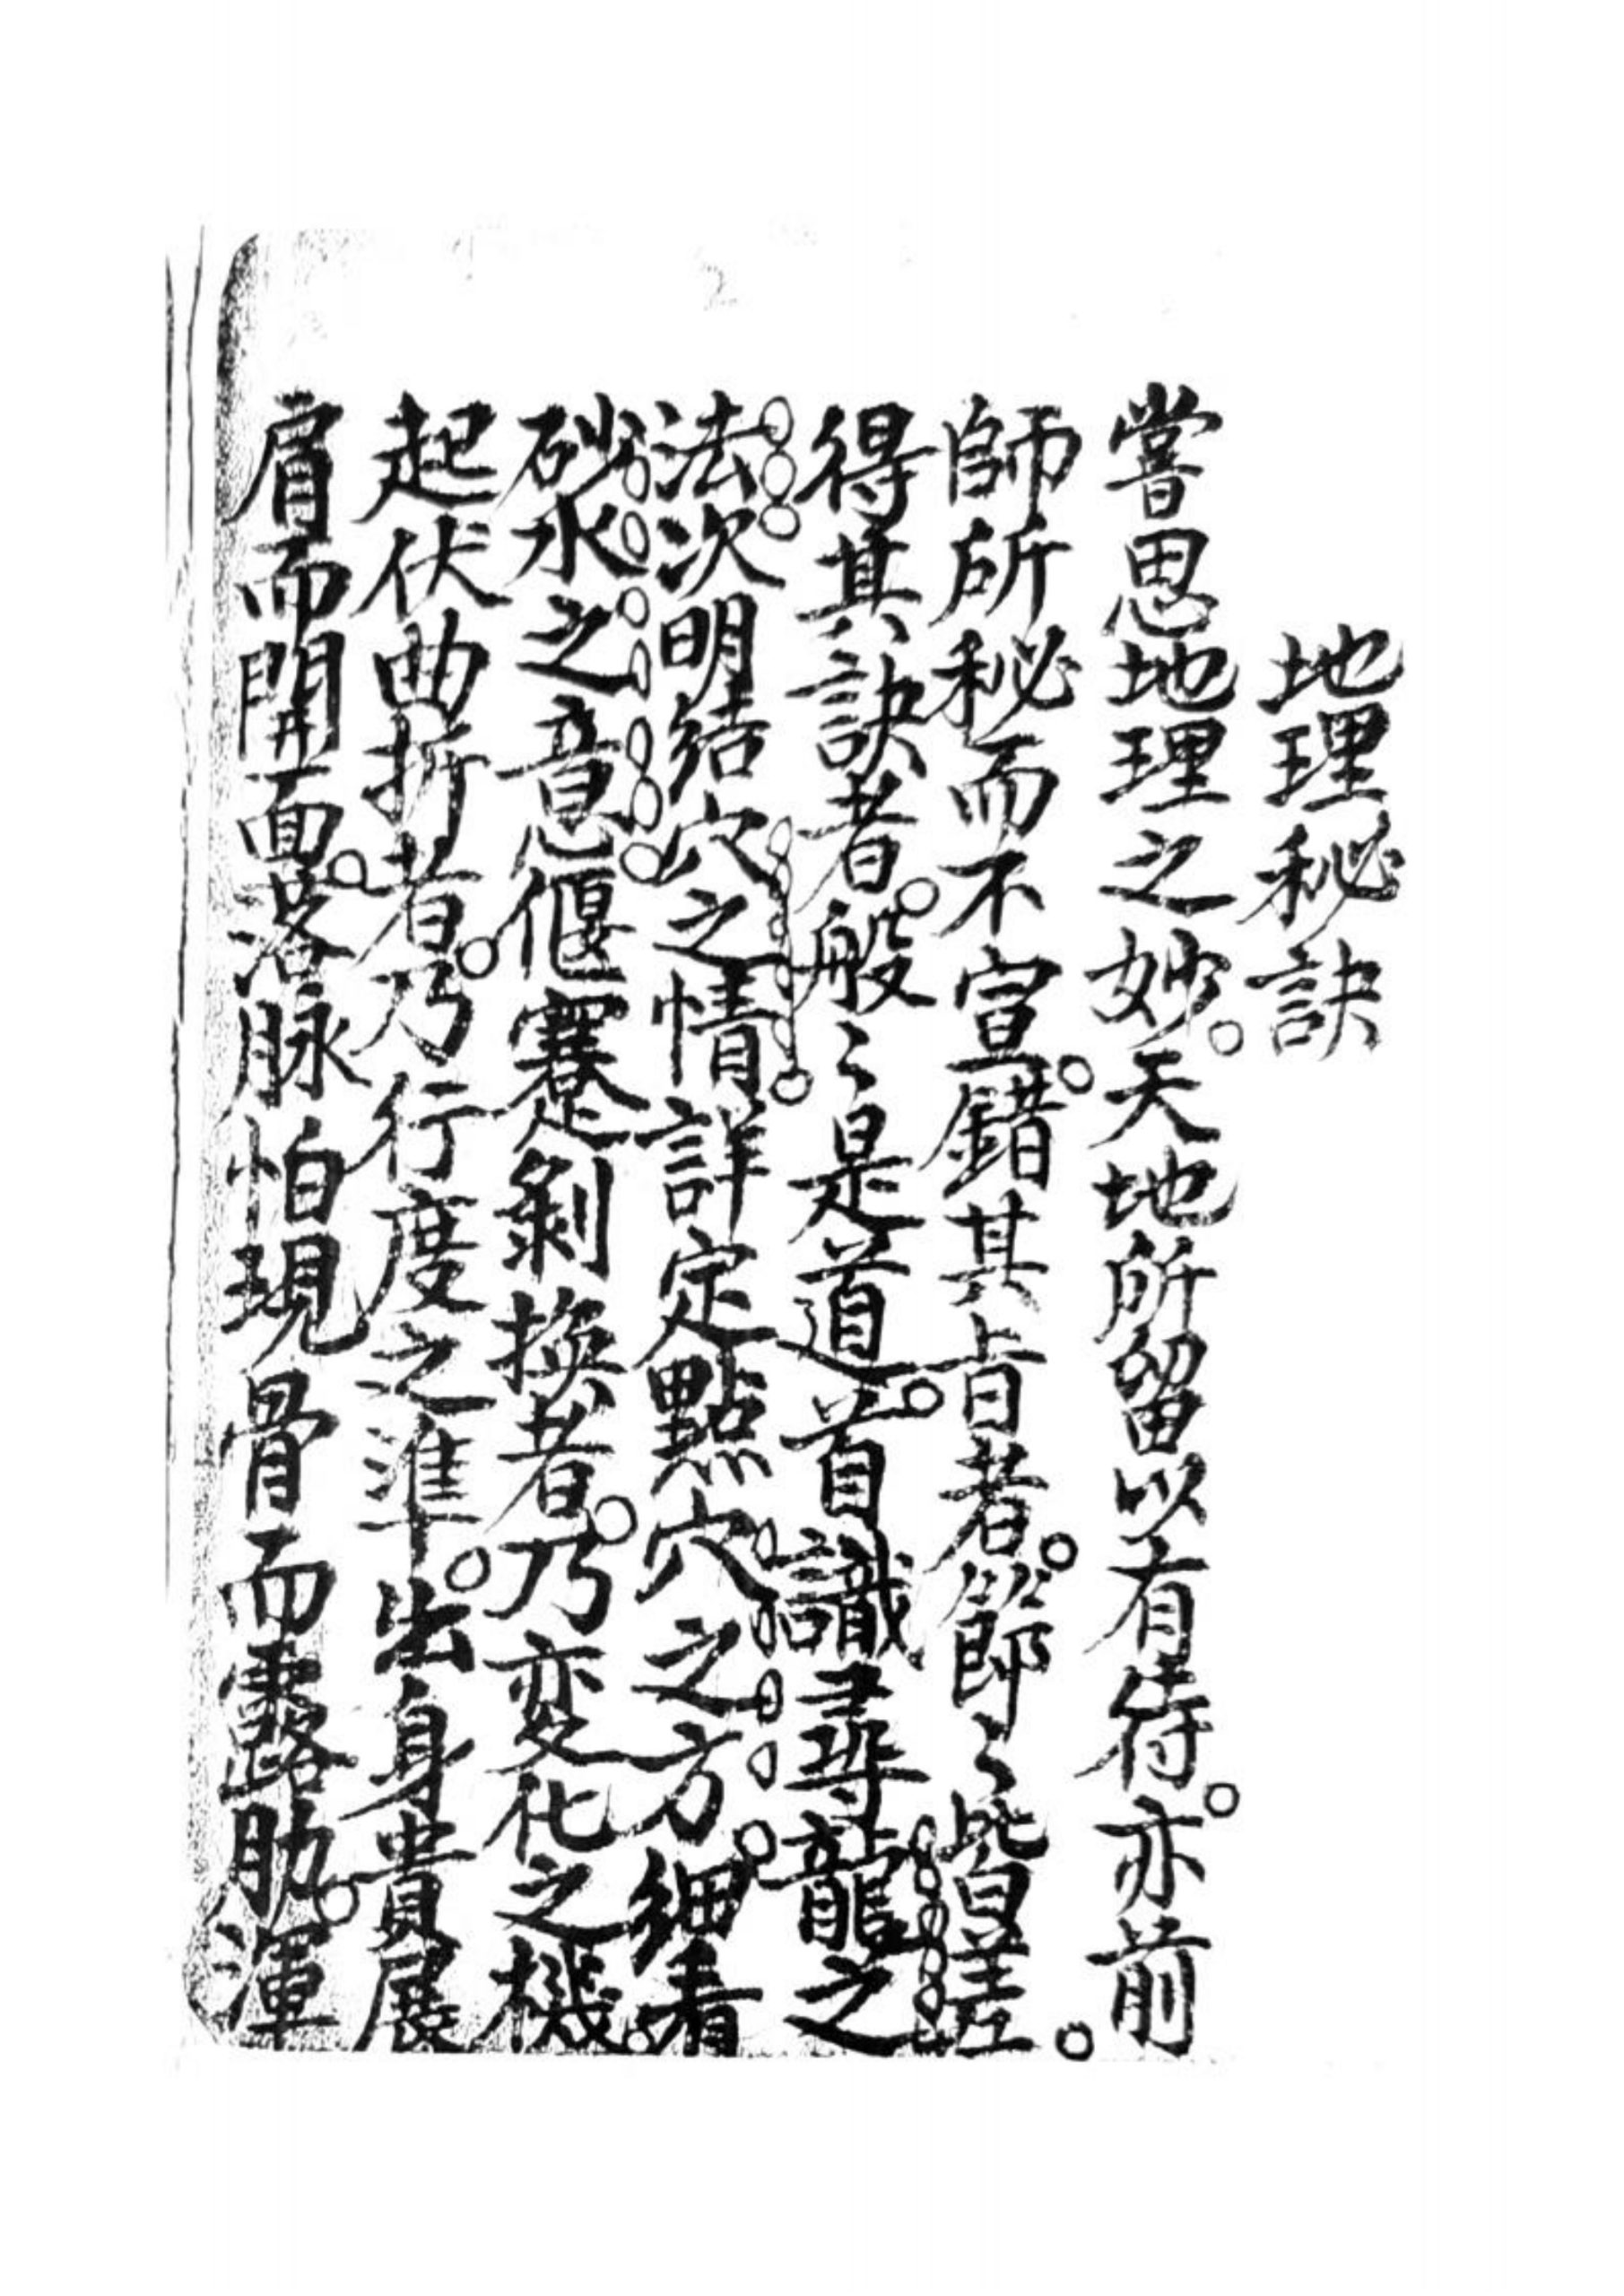 地理秘訣
嘗思地理之妙。天地所留以有待。亦前
師所秘而不宣。錯其旨者。節〻皆差。
得其訣者。般〻是道。首識尋龍之
法。次明結穴之情。詳定點穴之方。細看
砂水之意。偃蹇剝換者。乃変化之機。
起伏曲折者。乃行度之準。出身貴展
肩而開面。落脉怕現骨而露肋。渾